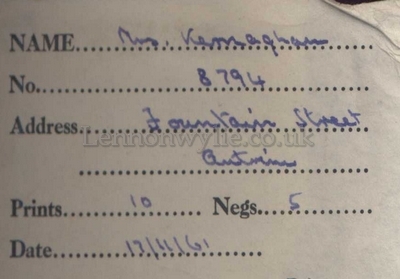 NAME Mrs. Kernaghan
No. 8794
Address Fountain Street
Lennonwylie.co.uk
Antrim
Prints 10 Negs. 5
Date 17/4/61